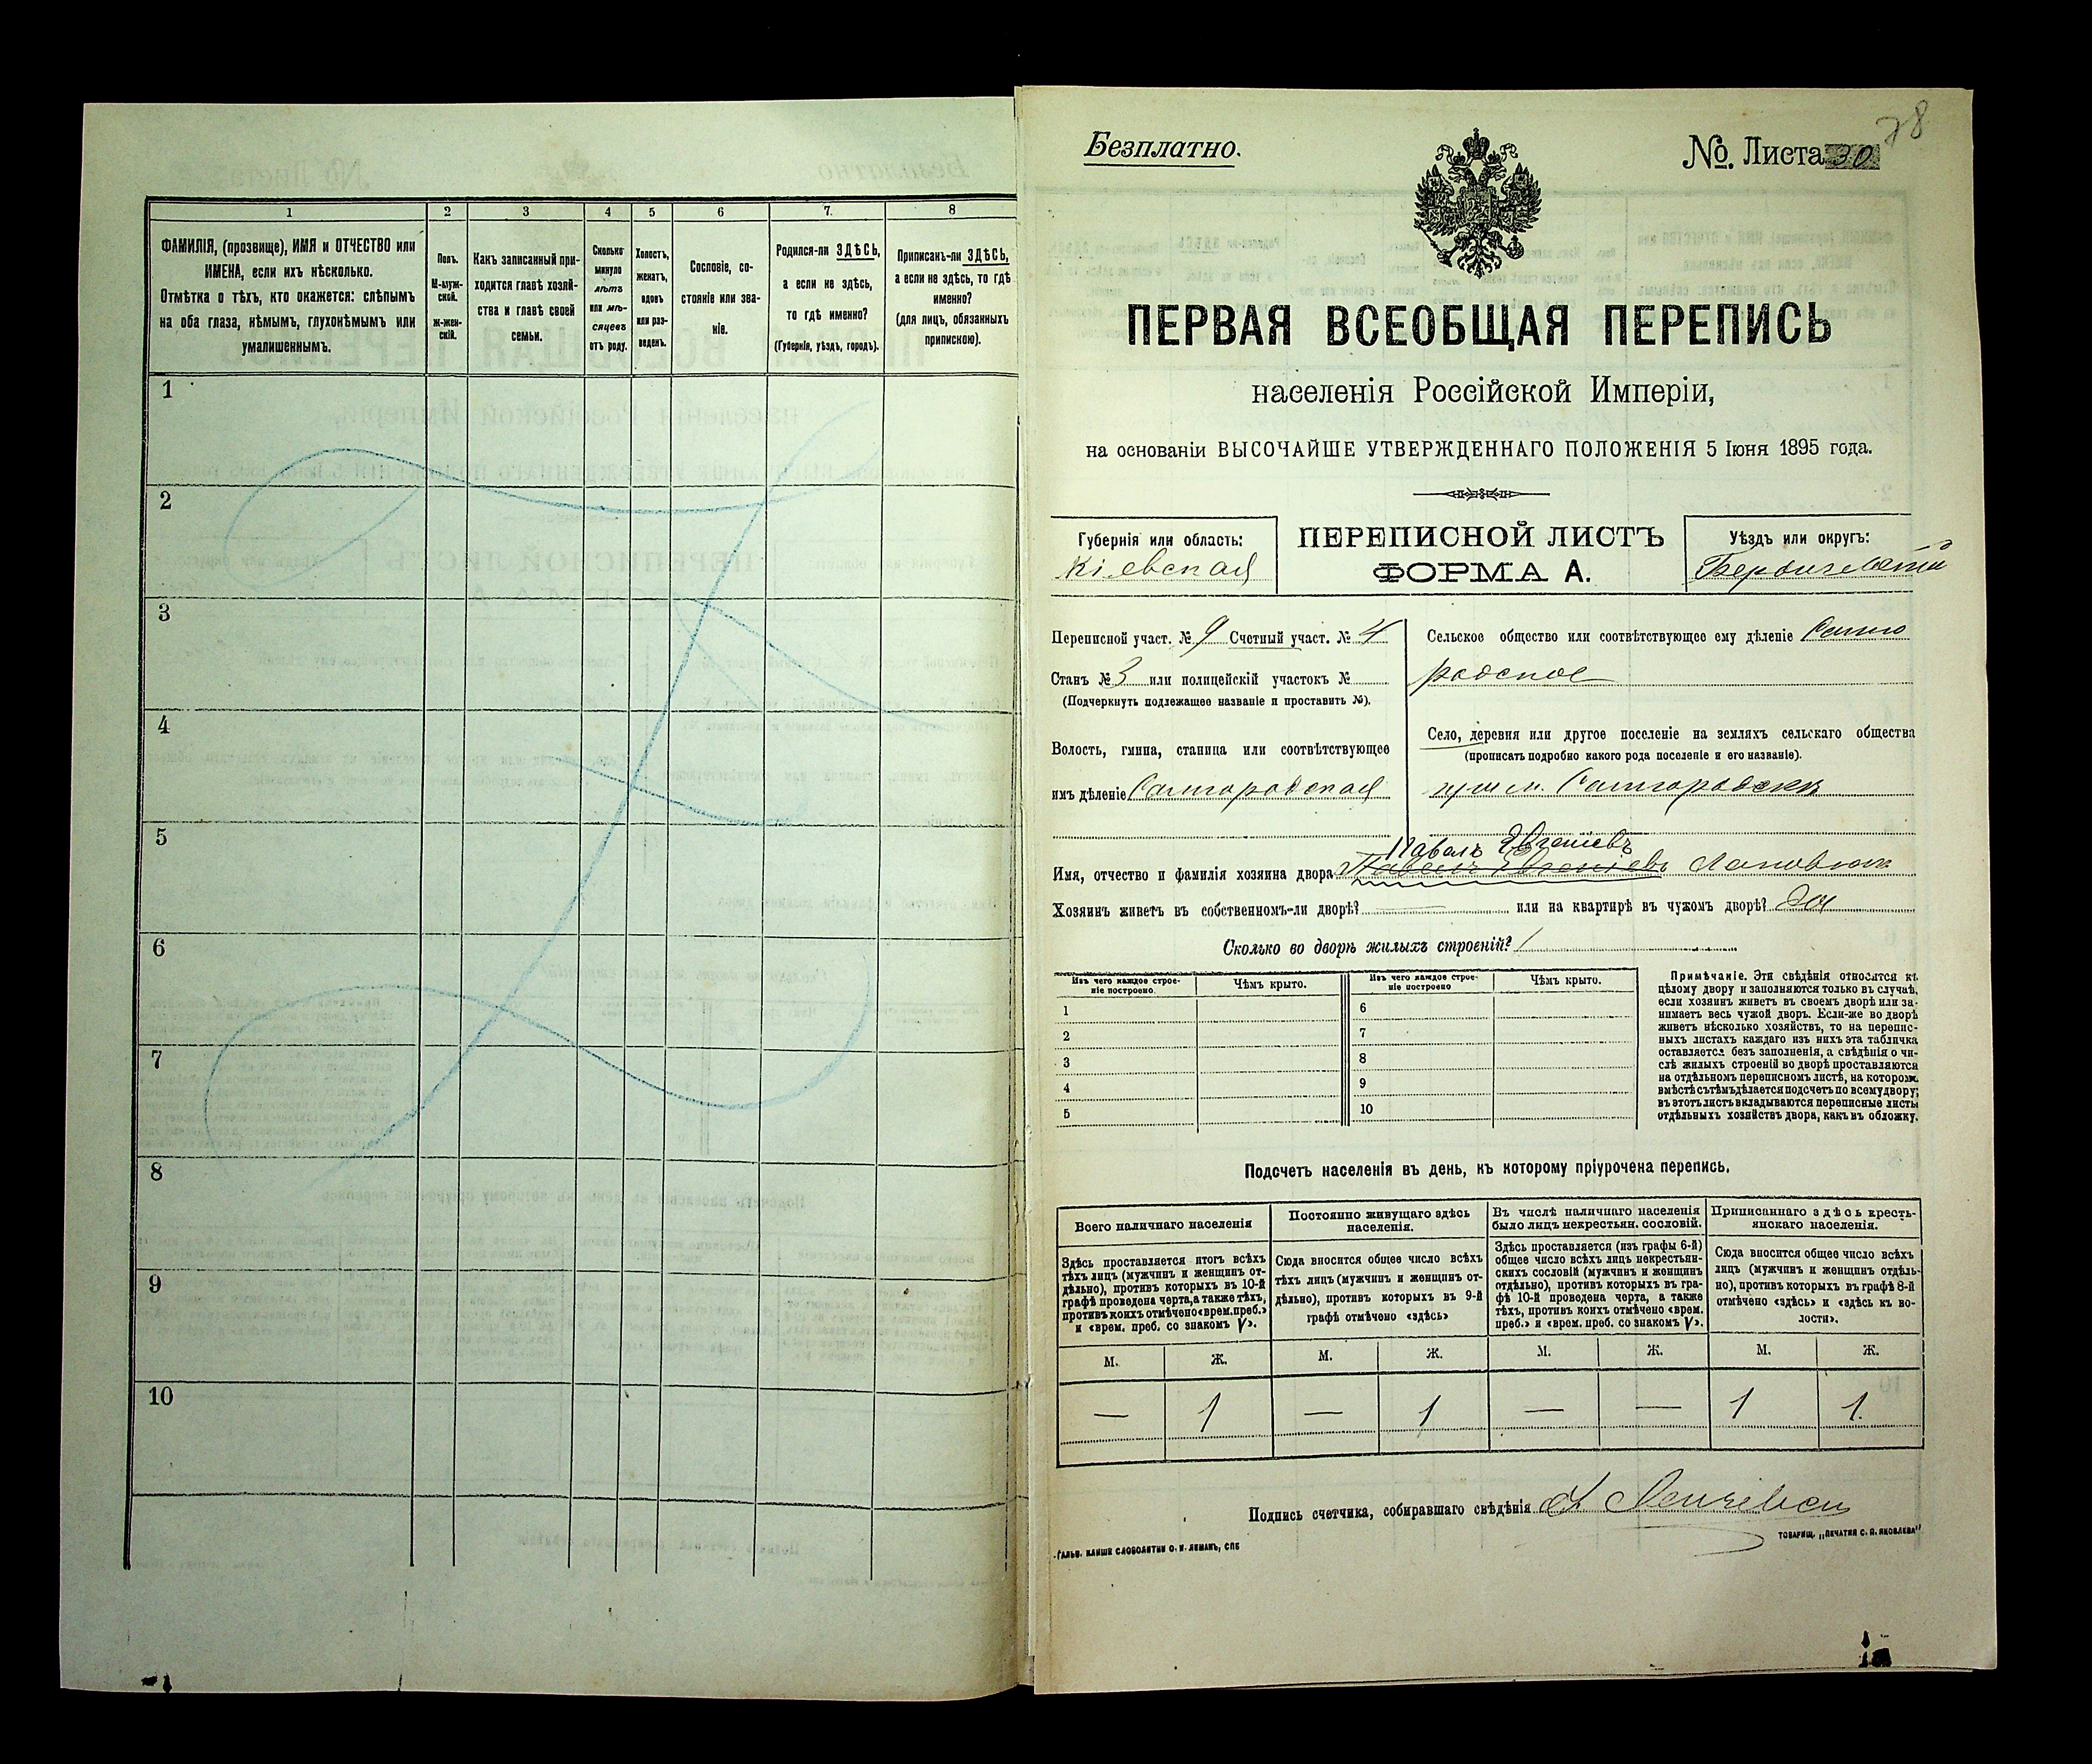 1 2 3 4 5 6 7. 8
ФАМИЛІЯ, (прозвище), ИМЯ и ОТЧЕСТВО или
ИМЕНА, если ихъ нѣсколько.
Отмѣтка о тѣхъ, кто окажется: слѣпымъ
на оба глаза, нѣмымъ, глухонѣмымъ или
умалишеннымъ.
Полъ.
М-муж-
ской.
Ж-жен-
скій.
Какъ записанный при-
ходится главѣ хозяй-
ства и главѣ своей
семьи.
Сколько
минуло
лѣтъ
или мѣ-
сяцевъ
отъ роду.
Холостъ,
женатъ,
вдовъ
или раз-
веденъ.
Сословіе, со-
стояніе или зва-
ніе.
Родился-ли ЗДѢСЬ,
а если не здѣсь,
то гдѣ именно?
(Губернія, уѣздъ, городъ).
Приписанъ-ли ЗДѢСЬ,
а если не здѣсь, то гдѣ
именно?
(для лицъ, обязанныхъ
припискою).
1
2
3
4
5
6
7
8
9
10
78
Безплатно.
№. Листа 30
ПЕРВАЯ ВСЕОБЩАЯ ПЕРЕПИСЬ
населенія Россійской Имперіи,
на основаніи ВЫСОЧАЙШЕ УТВЕРЖДЕННАГО ПОЛОЖЕНІЯ 5 Іюня 1895 года.
Губернія или область:
Кіевская
ПЕРЕПИСНОЙ ЛИСТЪ
ФОРМА А.
Уѣздъ или округъ:
Переписной участ. № 9 Счетный участ. № 4
Станъ № 3 или полицейскій участокъ №
(Подчеркнуть подлежащее названіе и проставить №).
Волость, гмина, станица или соотвѣтствующее
имъ дѣленіе Самгородская
Сельское общество или соотвѣтствующее ему дѣленіе Самго
родское
Село, деревня или другое поселеніе на земляхъ сельскаго общества
(прописать подробно какого рода поселеніе и его названіе).
Павелъ
Имя, отчество и фамилія хозяина двора
Хозяинъ живетъ въ собственномъ-ли дворѣ? — или на квартирѣ въ чужомъ дворѣ? Да
Сколько во дворѣ жилыхъ строеній? 1
Изъ чего каждое строе-
ніе построено.
Чѣмъ крыто.
Изъ чего каждое строе-
ніе построено
Чѣмъ крыто.
1 6
2 7
3 8
4 9
5 10
Примѣчаніе. Эти свѣдѣнія относятся къ
цѣлому двору и заполняются только въ случаѣ,
если хозяинъ живетъ въ своемъ дворѣ или за-
нимаетъ весь чужой дворъ. Если-же во дворѣ
живетъ нѣсколько хозяйствъ, то на перепис-
ныхъ листахъ каждаго изъ нихъ эта табличка
оставляется безъ заполненія, а свѣдѣнія о чи-
слѣ жилыхъ строеній во дворѣ проставляются
на отдѣльномъ переписномъ листѣ, на которомъ
вмѣстѣ съ тѣмъ дѣлается подсчетъ по всему двору;
въ этотъ листъ вкладываются переписные листы
отдѣльныхъ хозяйствъ двора, какъ въ обложку.
Подсчетъ населенія въ день, къ которому пріурочена перепись.
Всего наличнаго населенія
Постоянно живущаго здѣсь
населенія.
Въ числѣ наличнаго населенія
было лицъ некрестьян. сословій.
Приписаннаго здѣсь кресть-
янскаго населенія.
Здѣсь проставляется итогъ всѣхъ
тѣхъ лицъ (мужчинъ и женщинъ от-
дѣльно), противъ которыхъ въ 10-й
графѣ проведена черта, а также тѣхъ,
противъ коихъ отмѣчено «врем. преб.»
и «врем. преб. со знакомъ V».
Сюда вносится общее число всѣхъ
тѣхъ лицъ (мужчинъ и женщинъ от-
дѣльно), противъ которыхъ въ 9-й
графѣ отмѣчено «здѣсь»
Здѣсь проставляется (изъ графы 6-й)
общее число всѣхъ лицъ некрестьян-
скихъ сословій (мужчинъ и женщинъ
отдѣльно), противъ которыхъ въ гра-
фѣ 10-й проведена черта, а также
тѣхъ, противъ коихъ отмѣчено «врем.
преб.» и «врем. преб. со знакомъ V».
Сюда вносится общее число всѣхъ
лицъ (мужчинъ и женщинъ отдѣль-
но), противъ которыхъ въ графѣ 8-й
отмѣчено «здѣсь» и «здѣсь къ во-
лости».
М. Ж. М. Ж. М. Ж. М. Ж.
— 1 — 1 — — 1 1.
Подпись счетчика, собиравшаго свѣдѣнія
ГАЛЬВ. КЛИШЕ СЛОВОЛИТНИ О. И. ЛЕМАНЪ, СПБ
ТОВАРИЩ. „ПЕЧАТНЯ С. П. ЯКОВЛЕВА"